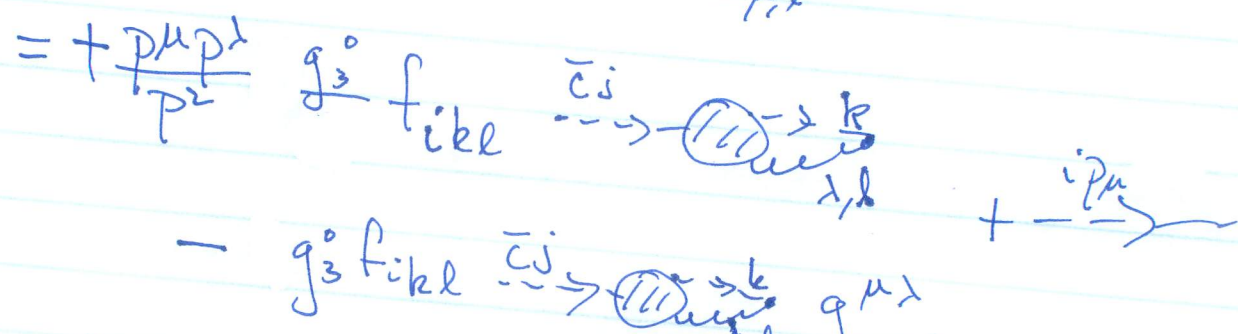 = + p^μ p^λ / p² g₃⁰ f_{ikl} c̄j k
λ,l + ipμ
− g₃⁰ f_{ikl} c̄j k g^{μλ}